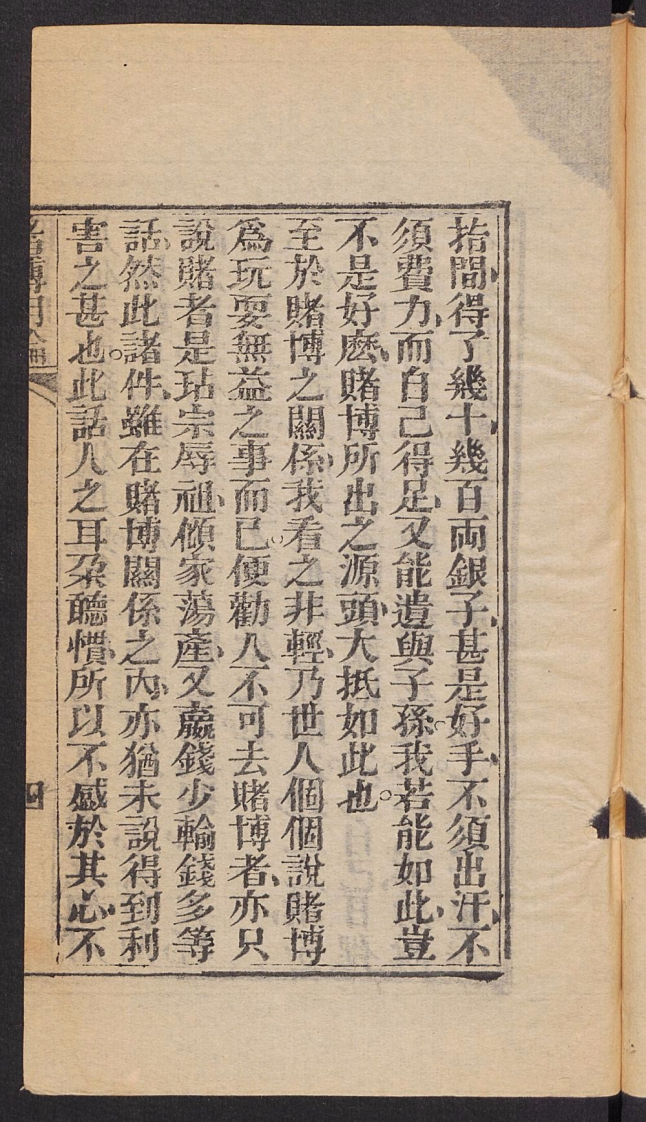 指間、得了幾十、幾百両銀子、甚是好手、不須出汗、不
須費力、而自己得足、又能遺與子孫。我若能如此、豈
不是好麽、賭博所出之源頭、大抵如此也。
至於賭博之關係、我看之非輕、乃世人個個說賭博
爲玩耍無益之事而已。便勸人不可去賭博者、亦只
說賭者是玷宗辱祖、傾家蕩產、又贏錢少輸錢多等
話、然此諸件、雖在賭博關係之內、亦猶未說得到利
害之甚也。此話人之耳朶聽慣、所以不感於其心、不
賭博明論
四